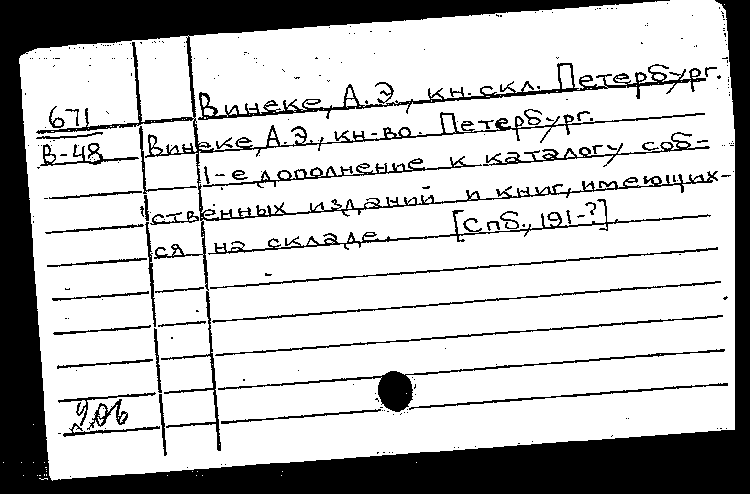 671
В-48
Винеке, А.Э., кн. скл. Петербург.
Винеке, А.Э., кн-во. Петербург.
1-е дополнение к каталогу соб-
ственных изданий и книг, имеющих-
ся на складе. [Спб., 191-?].